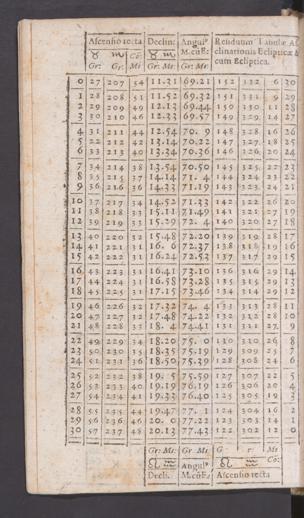 Ascensio recta Declin: Angulꝰ Residuum Tabulæ
♉ ♏ Co: ♉ ♏ M.cũE: clinationis Eclipticæ &
Gr: Gr: Mi Gr: Mi: Gr: Mi: cum Ecliptica.
0 27 207 54 11.31 69.21 152 332 6 30
1 28 208 51 11.52 69.32 151 331 29
2 29 209 49 12.13 69.44 150 330 11 28
3 30 210 46 12.33 69.57 149 329 14 27
4 31 211 44 12.54 70. 9 148 328 16 26
5 32 212 42 13.14 70.22 147 327 18 25
6 33 213 40 13.34 70.36 146 326 20 24
7 34 214 38 13.54 70.50 145 325 22 23
8 35 215 37 14.14 71. 4 144 324 23 22
9 36 216 36 14.33 71.19 143 323 24 21
10 37 217 34 14.52 71.33 142 322 26 20
11 38 218 33 15.11 71.49 141 321 27 19
12 39 219 33 15.29 72. 4 140 320 27 18
13 40 220 32 15.48 72.20 139 319 28 17
14 41 221 31 16. 6 72.37 138 318 29 16
15 42 222 31 16.24 72.53 137 317 29 15
16 43 223 31 16.41 73.10 136 316 29 14
17 44 224 31 16.58 73.28 135 315 29 13
18 45 225 31 17.15 73.46 134 314 29 12
19 46 226 32 17.32 74. 4 133 313 28 11
20 47 227 32 17.48 74.22 132 312 28 10
21 48 228 33 18. 4 74.41 131 311 27 9
22 49 229 34 18.20 75. 0 130 310 26 8
23 50 230 35 18.35 75.19 129 309 25 7
24 51 231 36 18.50 75.39 128 308 24 6
25 52 232 38 19. 5 75.59 127 307 22 5
26 53 233 40 19.19 76.19 126 306 20 4
27 54 234 41 19.33 76.40 125 305 19 3
28 55 235 44 19.47 77. 1 124 304 16 2
29 56 236 46 20. 0 77.22 123 303 14 1
30 57 237 48 20.13 77.43 122 302 12 0
Gr: Mi Gr: Mi: G r: Mi
♌ ♒ Angulꝰ ♌ ♒ Co:
Decli. M.cũE: Ascensio recta